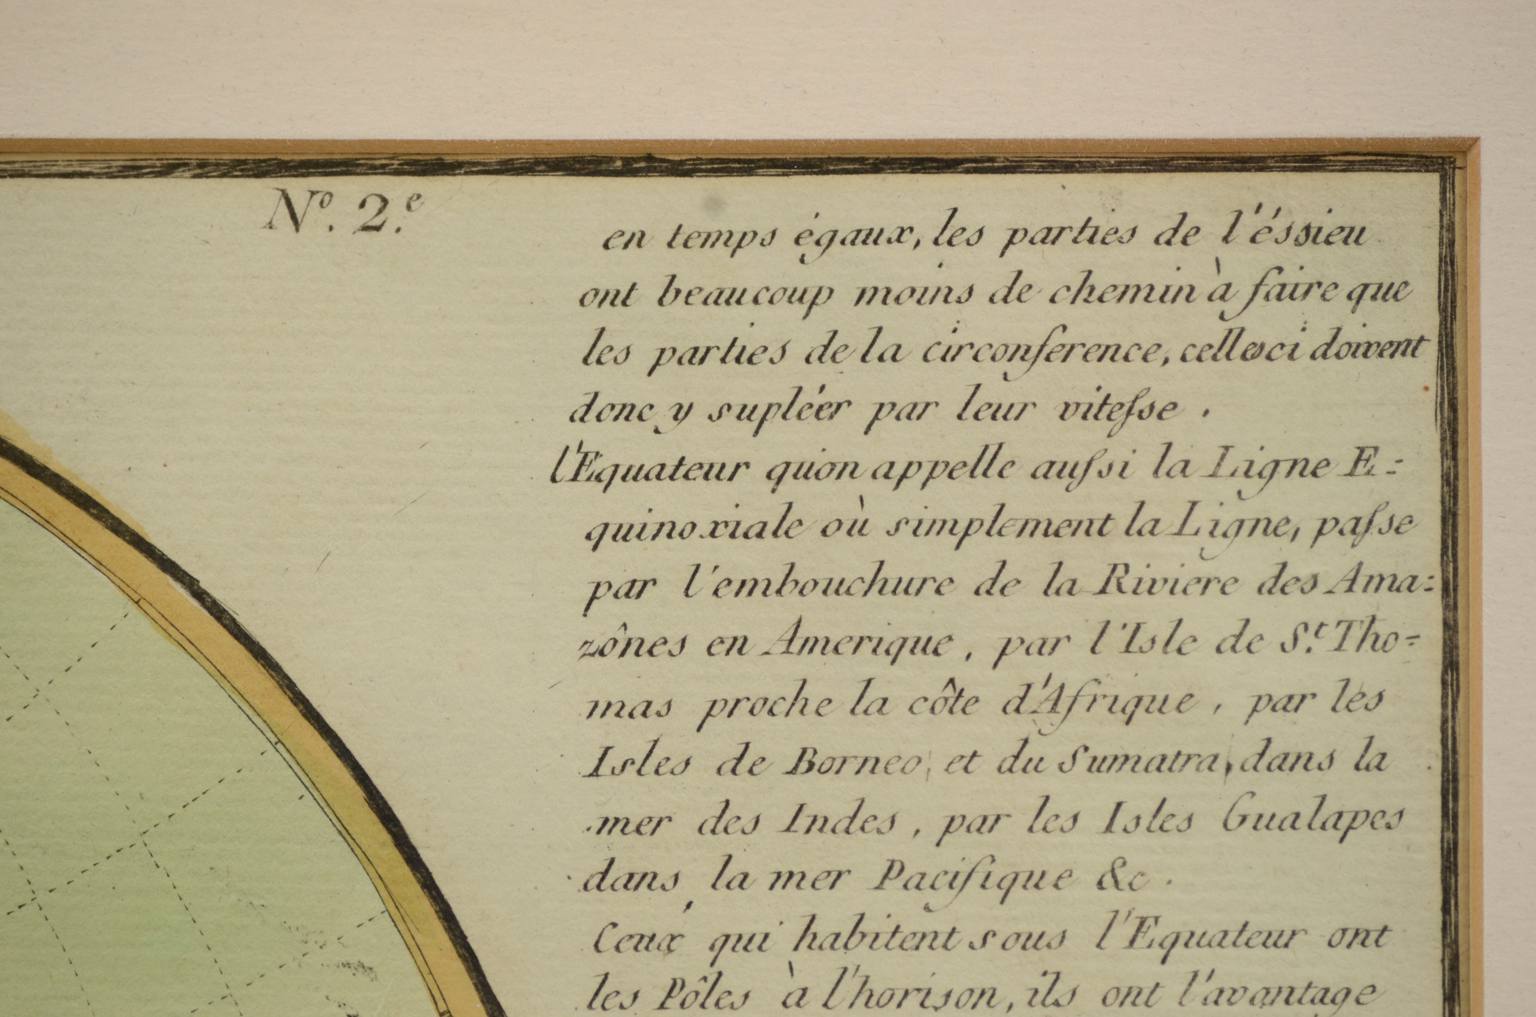 N.º 2.e
en temps égaux, les parties de l'éssieu
ont beaucoup moins de chemin à faire que
les parties de la circonference, cellesci doivent
donc y supléer par leur vitesse.
l'Equateur qu'on appelle aussi la Ligne E=
quinoxiale où simplement la Ligne, passe
par l'embouchure de la Riviere des Ama=
zônes en Amerique, par l'Isle de S.t Tho=
mas proche la côte d'Afrique, par les
Isles de Borneo, et du Sumatra, dans la
mer des Indes, par les Isles Gualapes
dans la mer Pacifique &c.
Ceux qui habitent sous l'Equateur ont
les Pôles à l'horison, ils ont l'avantage